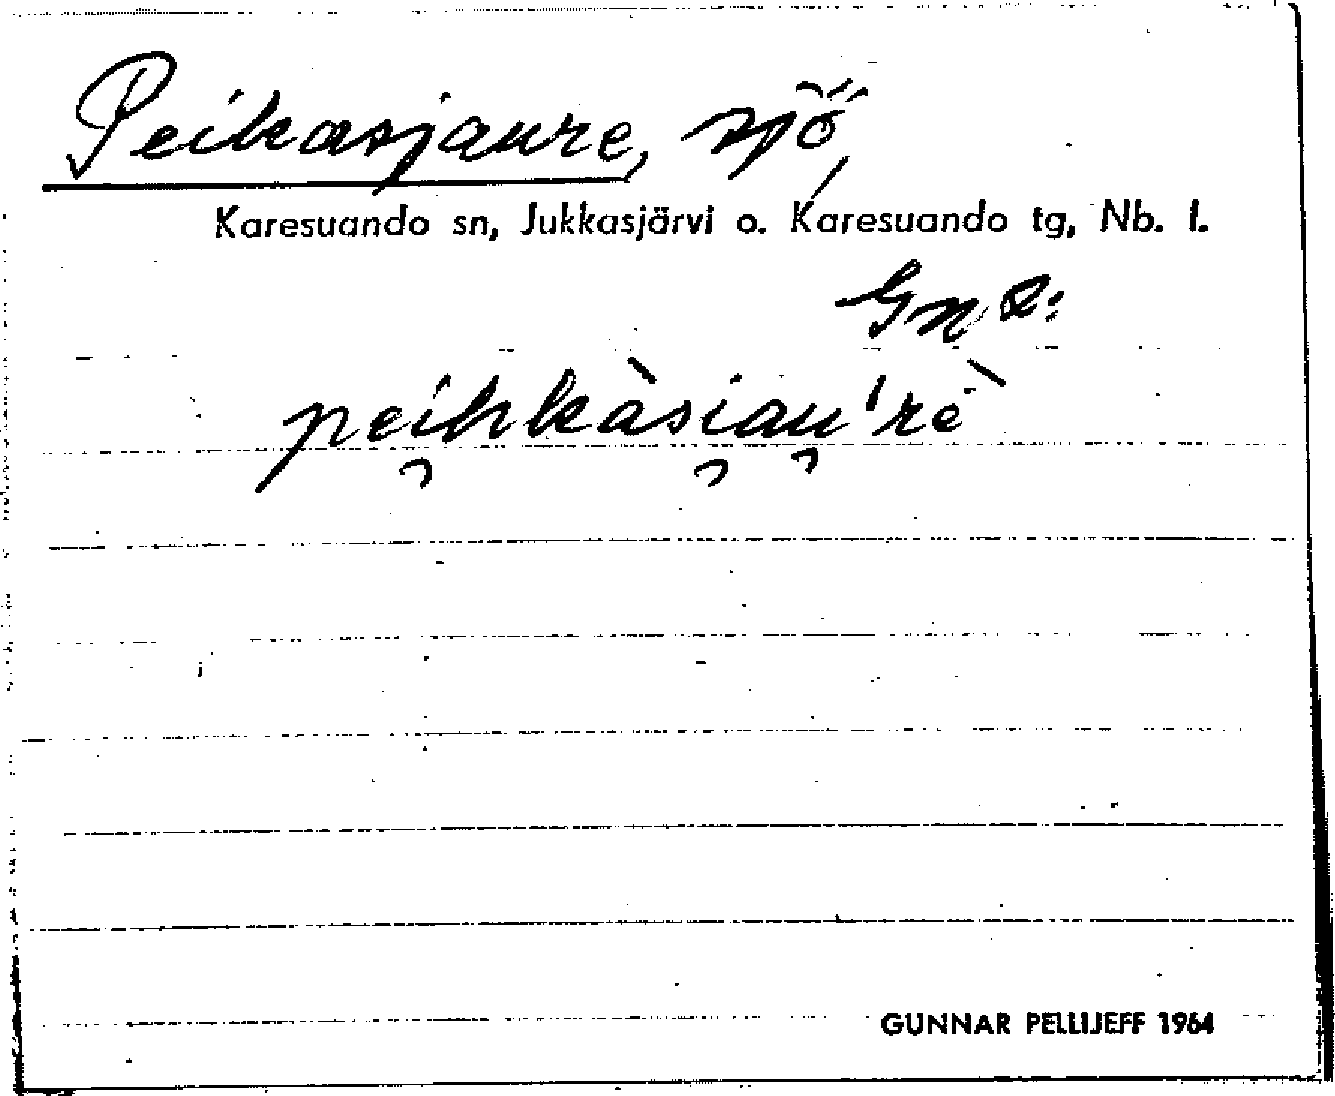 Peikasjaure, sjö
Karesuando sn, Jukkasjärvi o. Karesuando tg, Nb. l.
peihkàsiau'rè
GUNNAR PELLIJEFF 1964